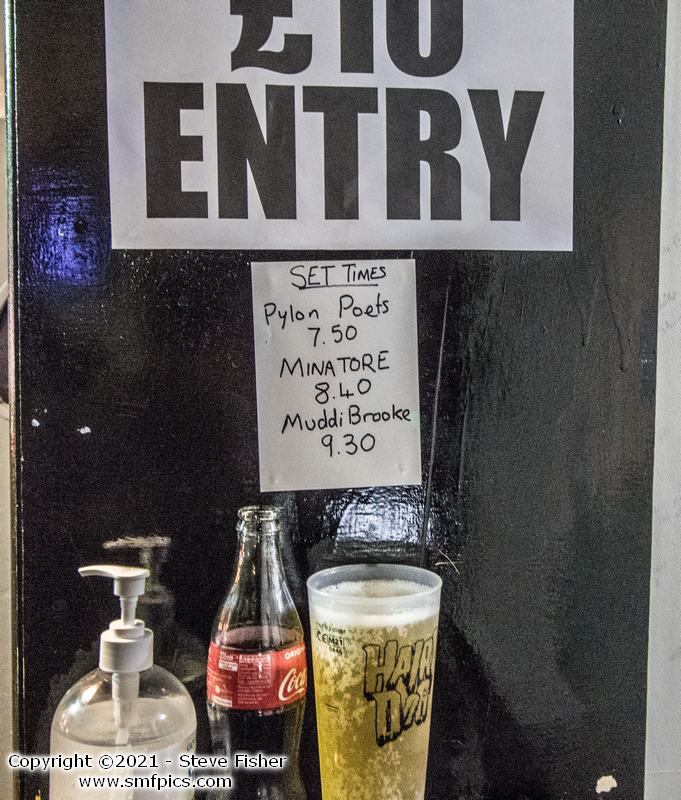 £10
ENTRY
SET TIMES
Pylon Poets
7.50
MINATORE
8.40
Muddi Brooke
9.30
ORIG
Coca
CE M21
HAIR
DOG
Copyright ©2021 - Steve Fisher
www.smfpics.com